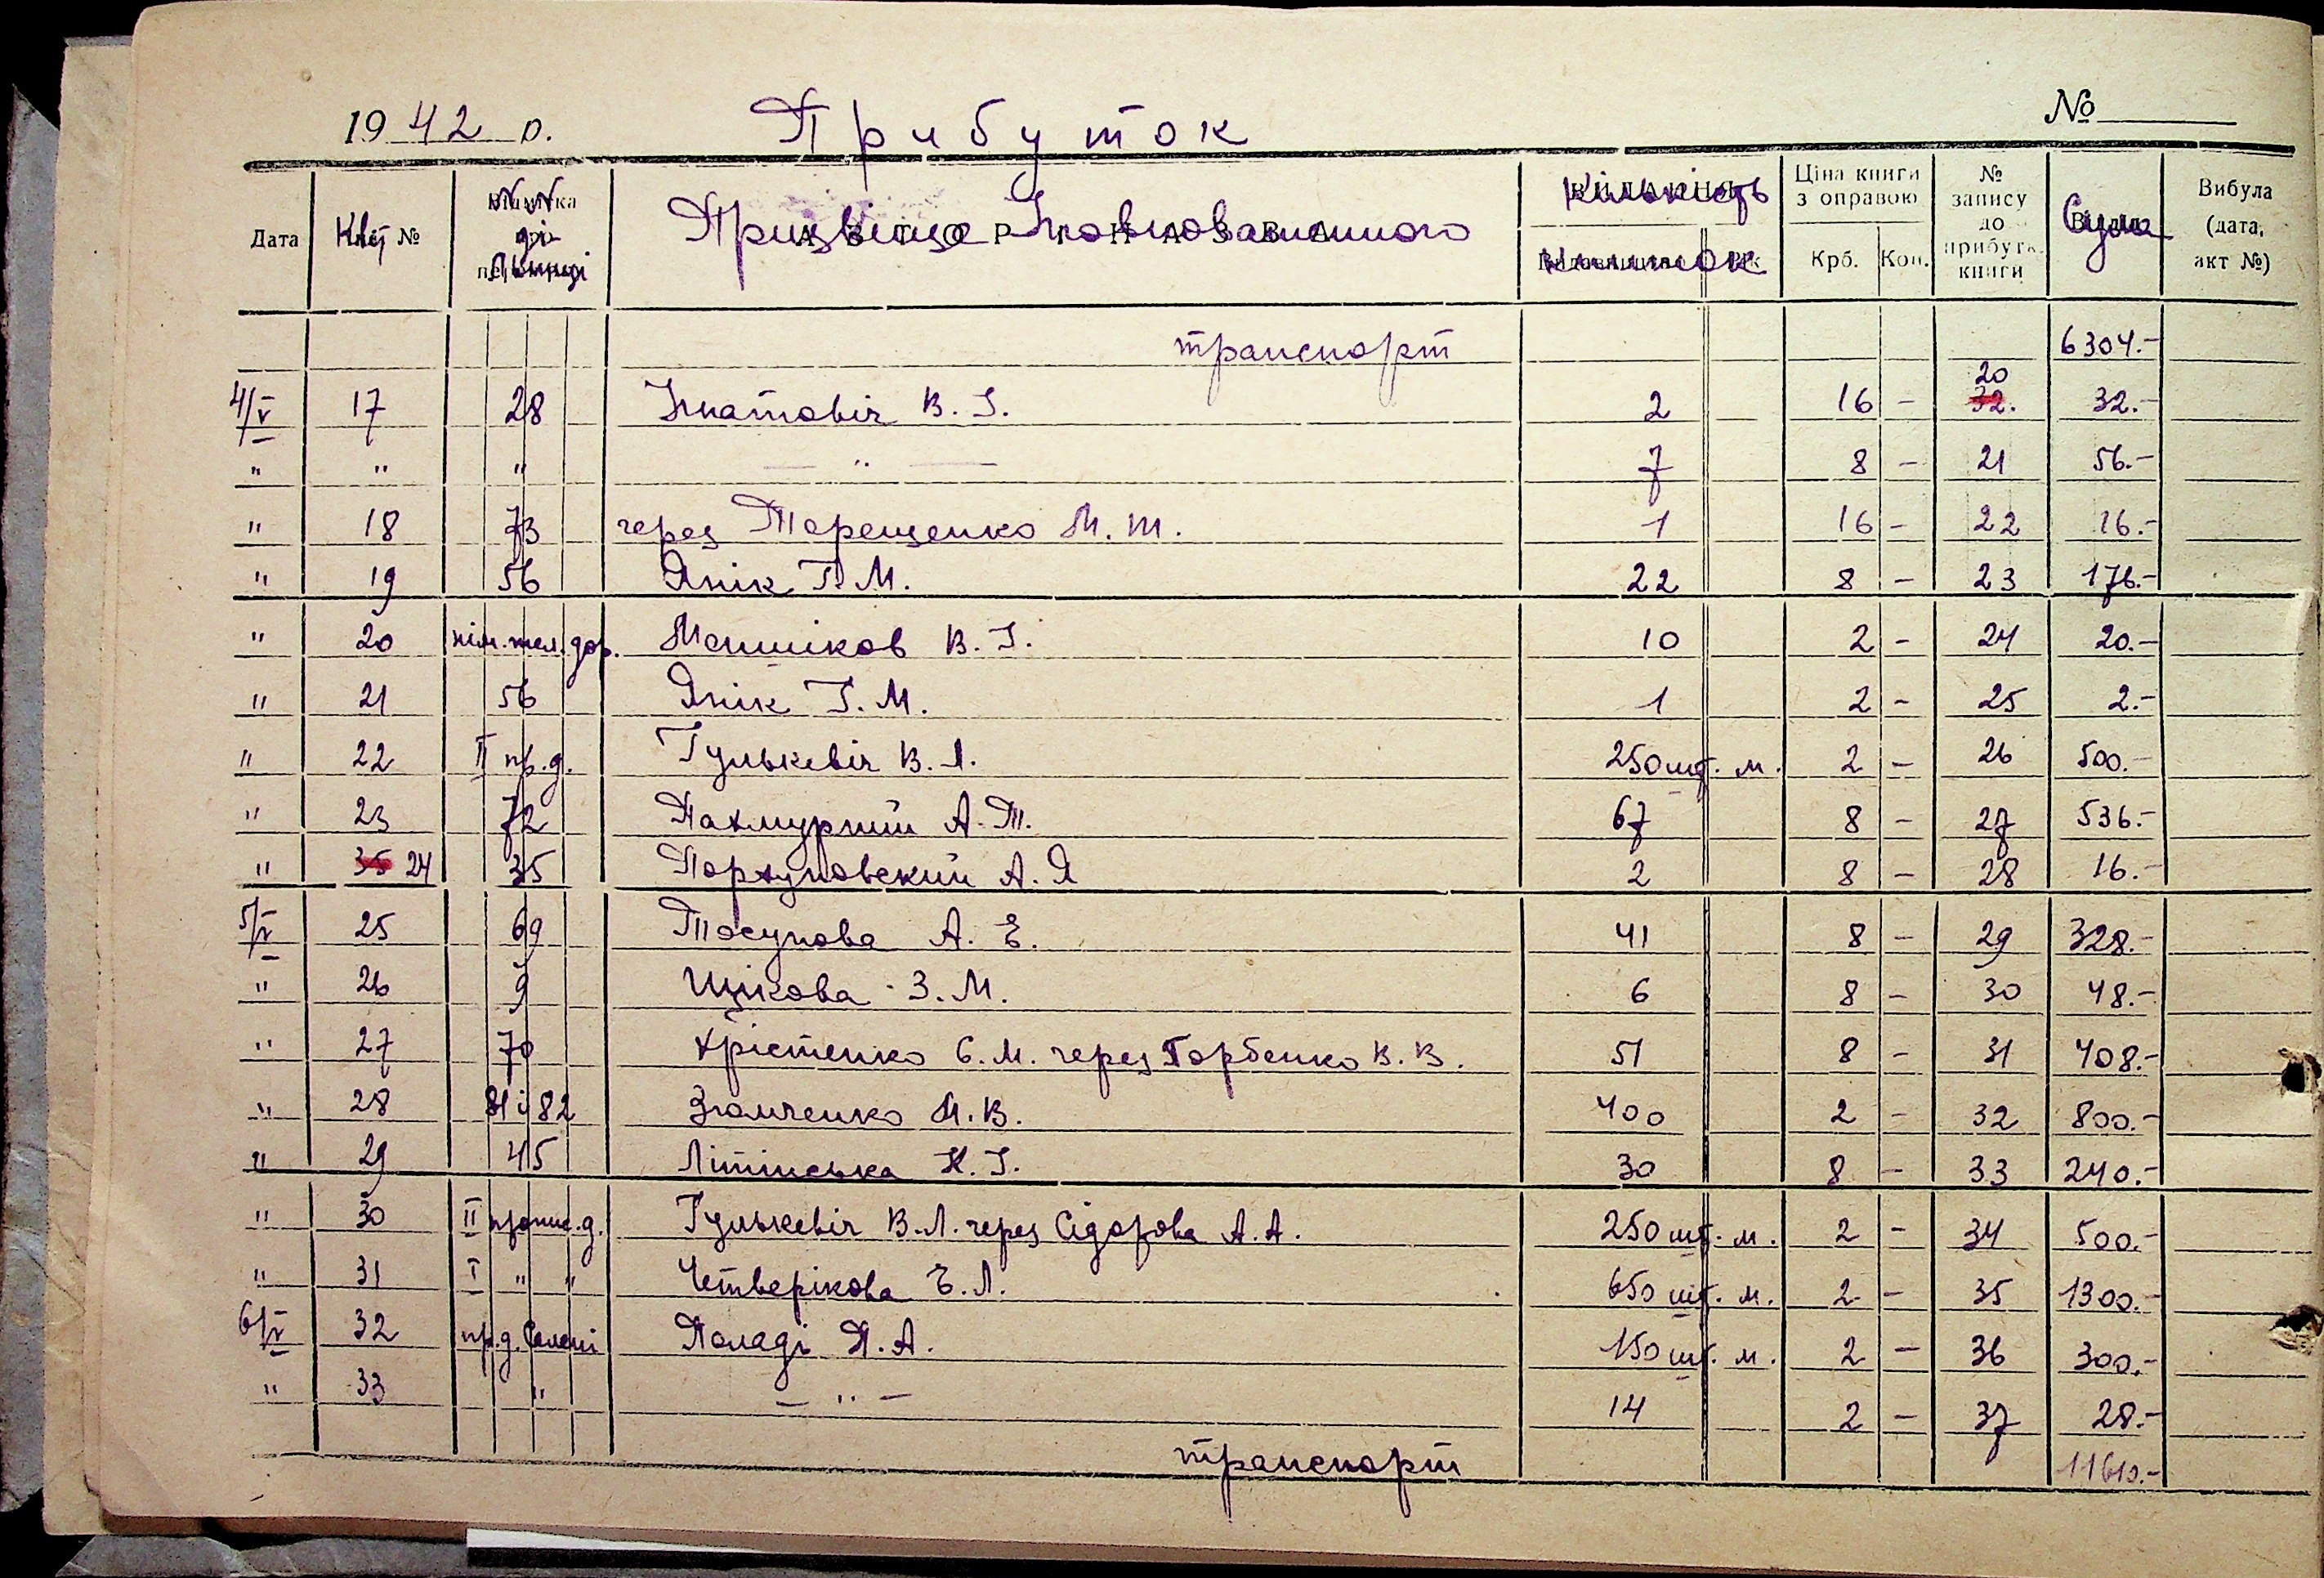 1942 р. Прибуток №
Дата Квт № №№ дільниці Прізвище Уповноваженного Кількість книжок Ціна книги з оправою Крб. Коп. № запису до прибутк. книги Сума Вибула (дата, акт №)
транспорт 6304.-
4/V 17 28 Ігнатовіч В. І. 2 16 - 20 32. 32.-
" " " — " — 7 8 - 21 56.-
" 18 73 через Терещенко М. Т. 1 16 - 22 16.-
" 19 56 Янік Г. М. 22 8 - 23 176.-
" 20 нім. жел. дор. Меншіков В. І. 10 2 - 24 20.-
" 21 56 Янік Г. М. 1 2 - 25 2.-
" 22 II пр. д. Гулькевіч В. Л. 250 шт. м. 2 - 26 500.-
" 23 72 Пахмурний А. Т. 67 8 - 27 536.-
" 35 24 35 Порхуновский А. Я 2 8 - 28 16.-
5/V 25 69 Тосунова А. Е. 41 8 - 29 328.-
" 26 9 Щікова З. М. 6 8 - 30 48.-
" 27 70 Хрістенко Є. М. через Горбенко В. В. 51 8 - 31 408.-
" 28 81 і 82 Зіомченко М. В. 400 2 - 32 800.-
" 29 45 Літінська Н. І. 30 8 - 33 240.-
" 30 II промис. д. Гулькевіч В. Л. через Сідорова А. А. 250 шт. м. 2 - 34 500.-
" 31 I " " Четверікова Е. Л. 650 шт. м. 2 - 35 1300.-
6/V 32 пр. д. Паладі Я. А. 150 шт. м. 2 - 36 300.-
" 33 " — " — 14 2 - 37 28.-
транспорт 11610.-